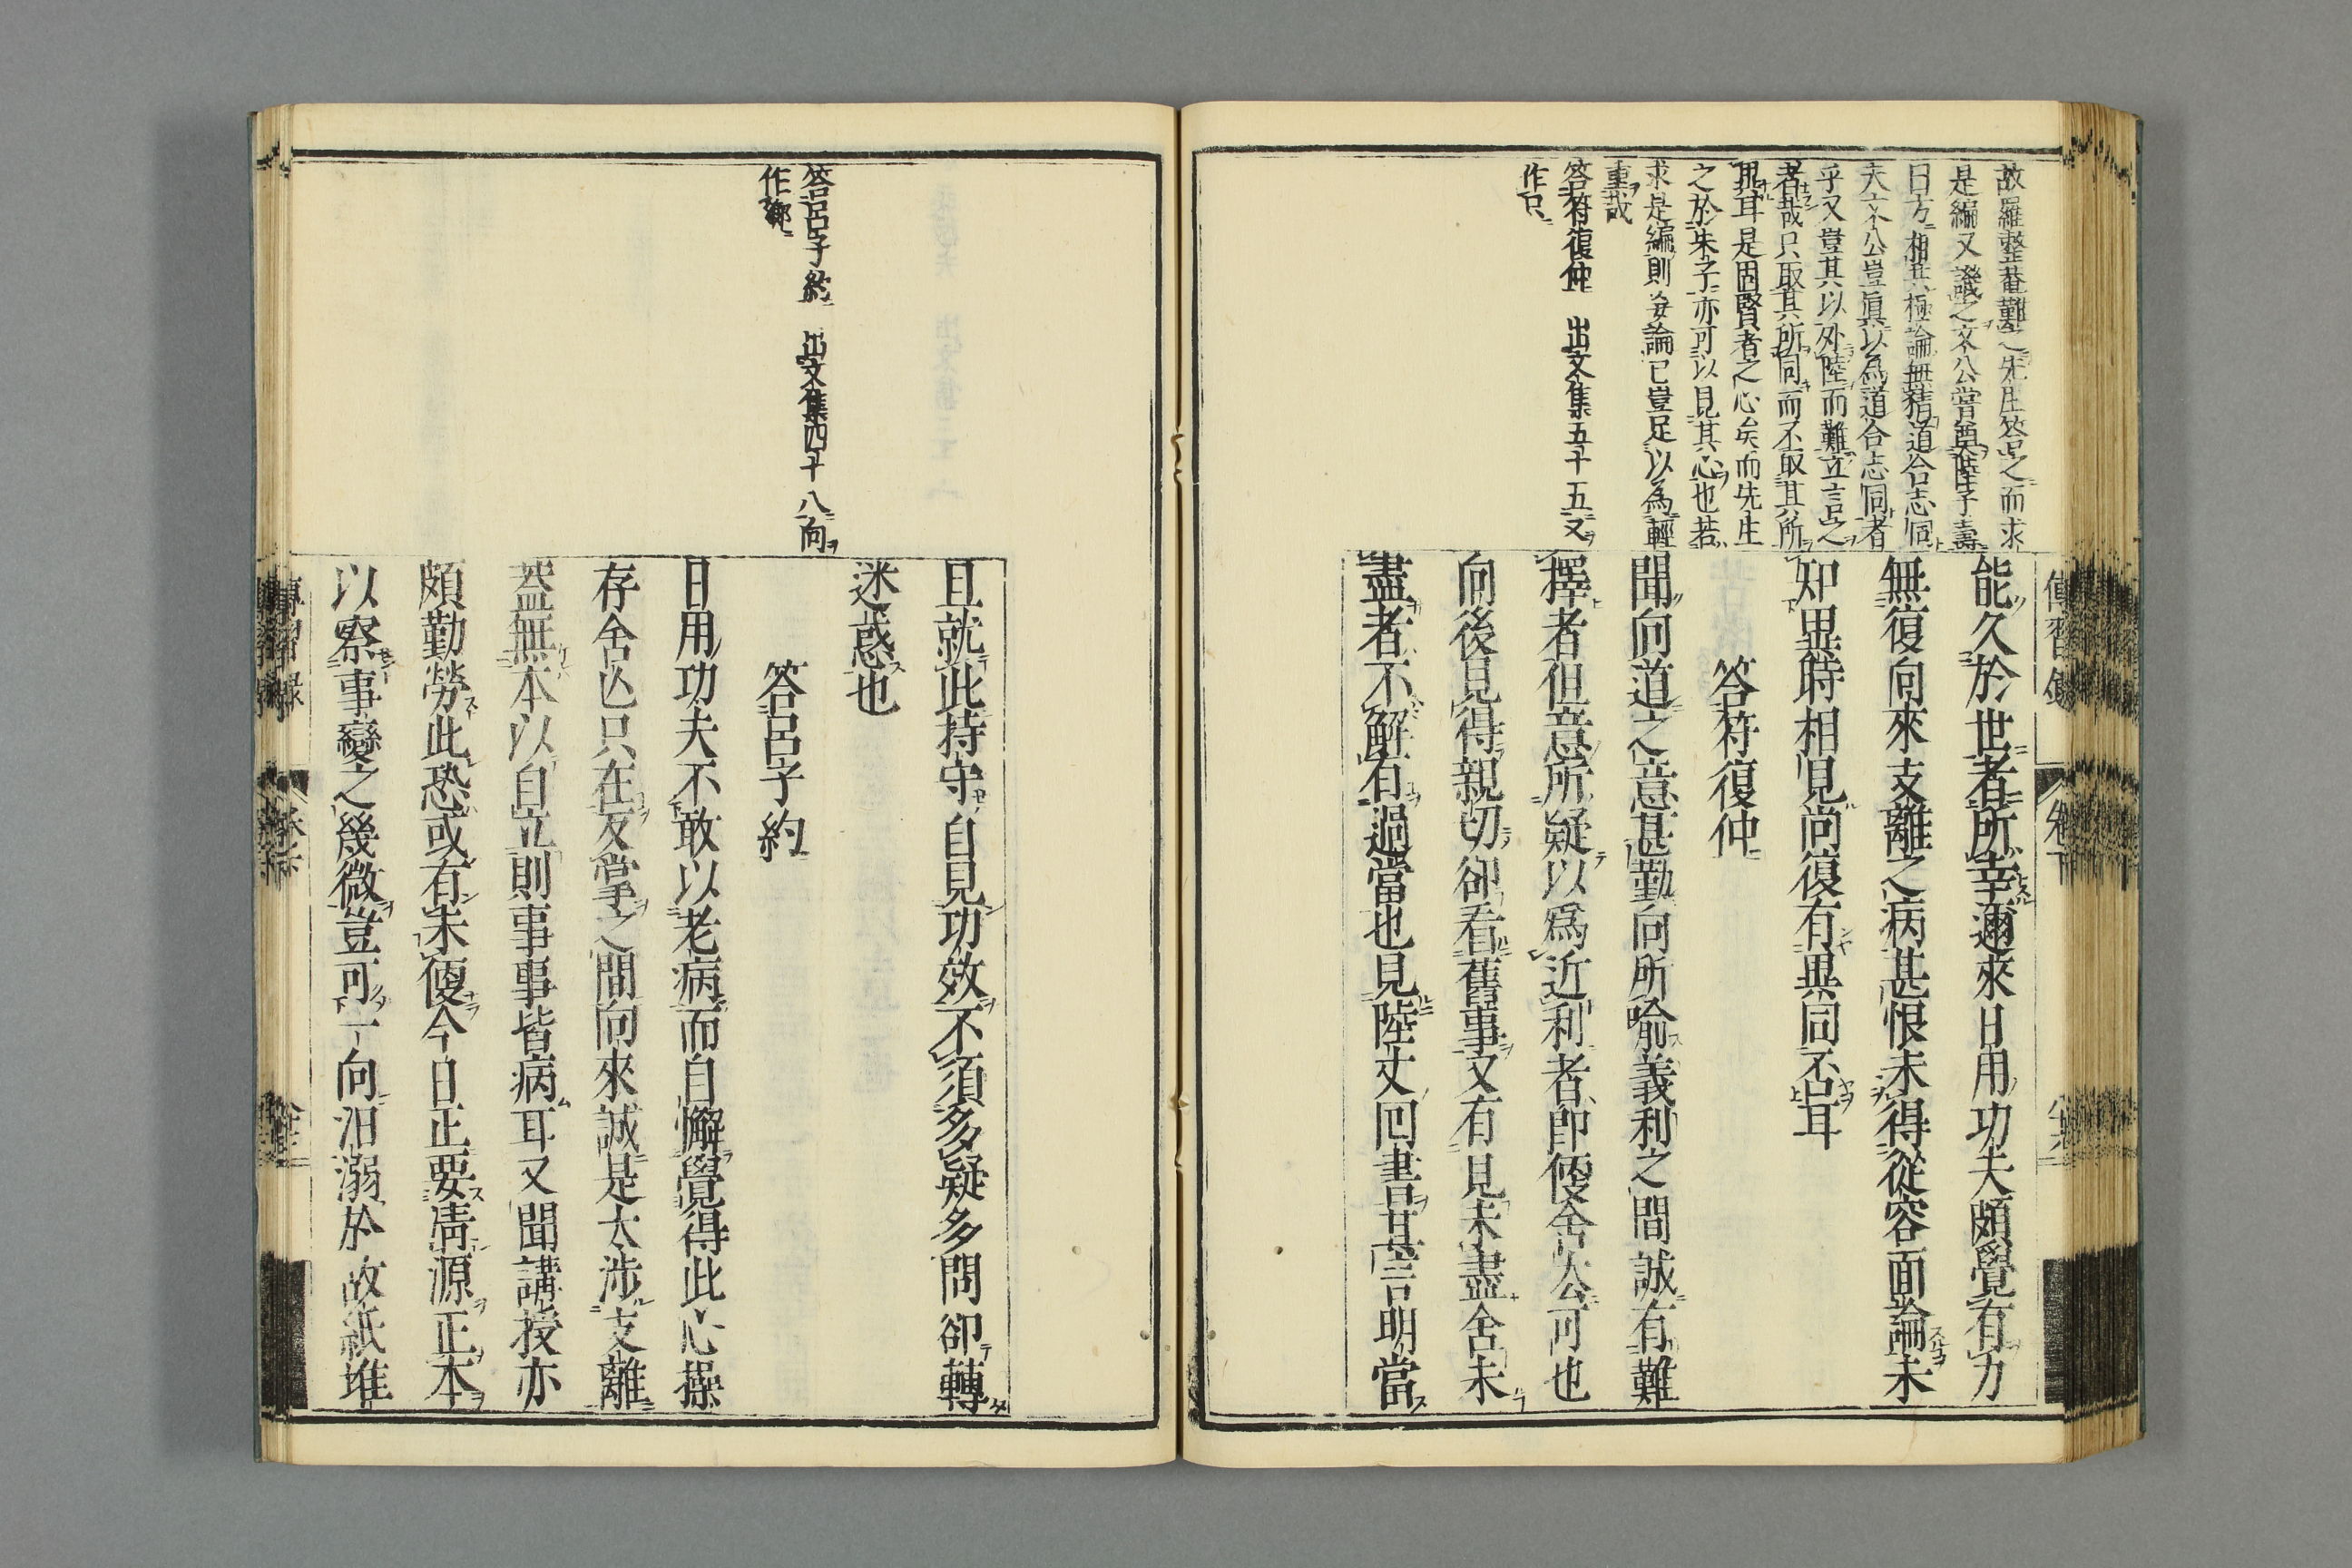 故羅整菴難之先生答之而求
是編又譏之文公嘗與陸子壽
曰方相共極論無猜道合志同
夫文公豈眞以為道合志同者
乎又豈其以外陸而難立言之
者哉只取其所同而不取其所
異耳是固賢者之心矣而先生
之於朱子亦可以見其心也若
求是編則妄論已豈足以為輕
重哉
答符復仲 出文集五十五又
作只
傳習錄
卷下
能久於世者所幸邇來日用功夫頗覺有力
無復向來支離之病甚恨未得從容面論未
知異時相見尚復有異同否耳
答符復仲
聞向道之意甚勤向所喻義利之間誠有難
擇者但意所疑以爲近利者即便舍去可也
向後見得親切卻看舊事又有見未盡舍未
盡者不解有過當也見陸丈回書其言明當
答呂子約 出文集四十八向
作鄉
且就此持守自見功效不須多疑多問卻轉
迷惑也
答呂子約
日用功夫不敢以老病而自懈覺得此心操
存舍亡只在反掌之間向來誠是太涉支離
蓋無本以自立則事事皆病耳又聞講授亦
頗勤勞此恐或有未便今日正要清源正本
以察事變之幾微豈可一向汨溺於故紙堆
傳習錄